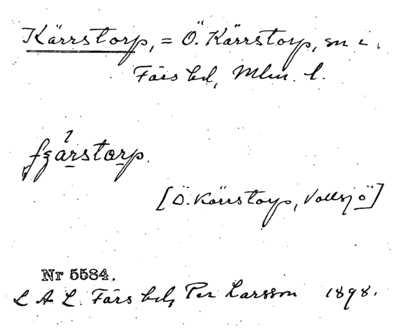 Kärrstorp, = Ö. Kärrstorp, sn i.
Färs hd, Mlm. l.
fzàrstorp.
[Ö. Kärrstorp, Vollsjö]
Nr 5584.
L A L. Färs hd, Per Larsson 1898.